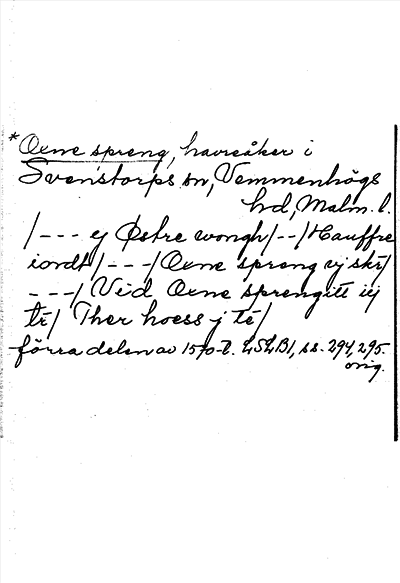 *Oxne spreng, havreåker i
Svenstorps sn, Vemmenhögs
hd, Malm. l.
/--- ej Østre wongh/--/Hauffre
iordt/---/Oxne spreng vj skt/
---/ Vid Oxne sprengitt iij
tr/ Ther hoess j te/
förra delen av 1570-t. LSLB1, ss. 294, 295.
orig.